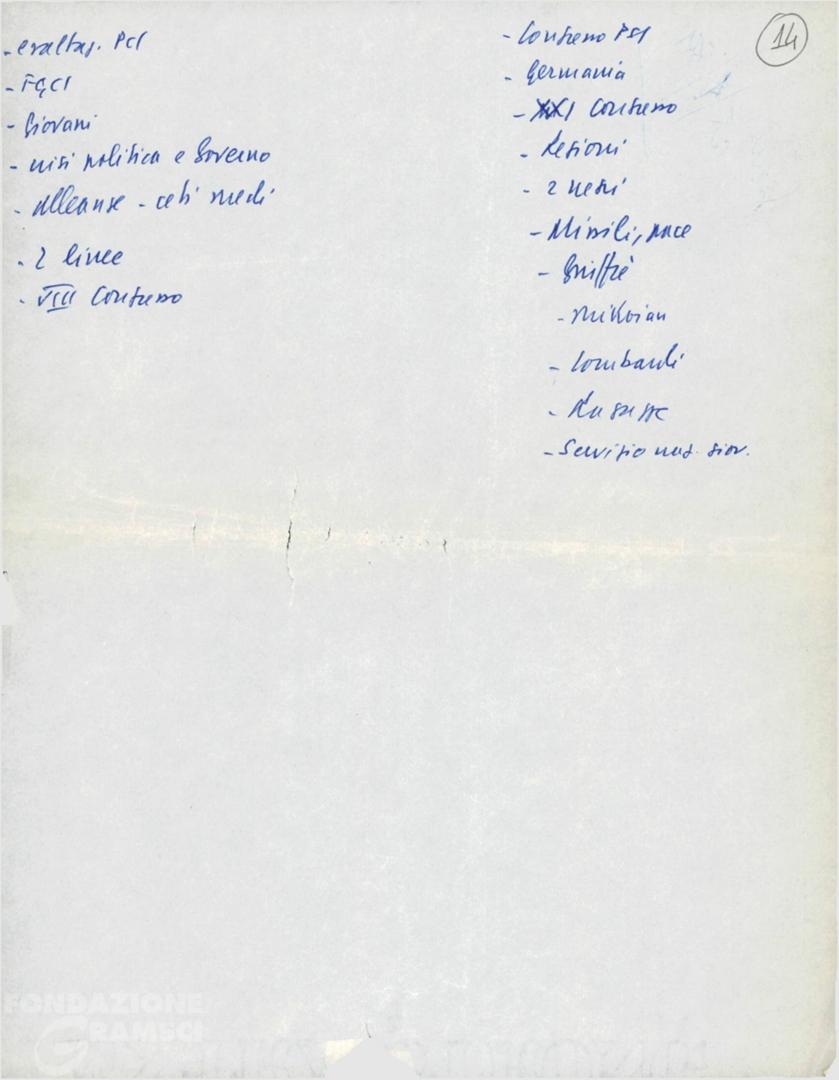 14
- esaltaz. PCI
- FGCI
- Giovani
- crisi politica e Governo
- alleanze - ceti medi
- 2 linee
- VIII Congresso
- Congresso PSI
- Germania
- XXI Congresso
- Regioni
- 2 mesi
- Missili, pace
- Giuffrè
- Mikoian
- Lombardi
-
- Servizio naz. giov.
FONDAZIONE
GRAMSCI